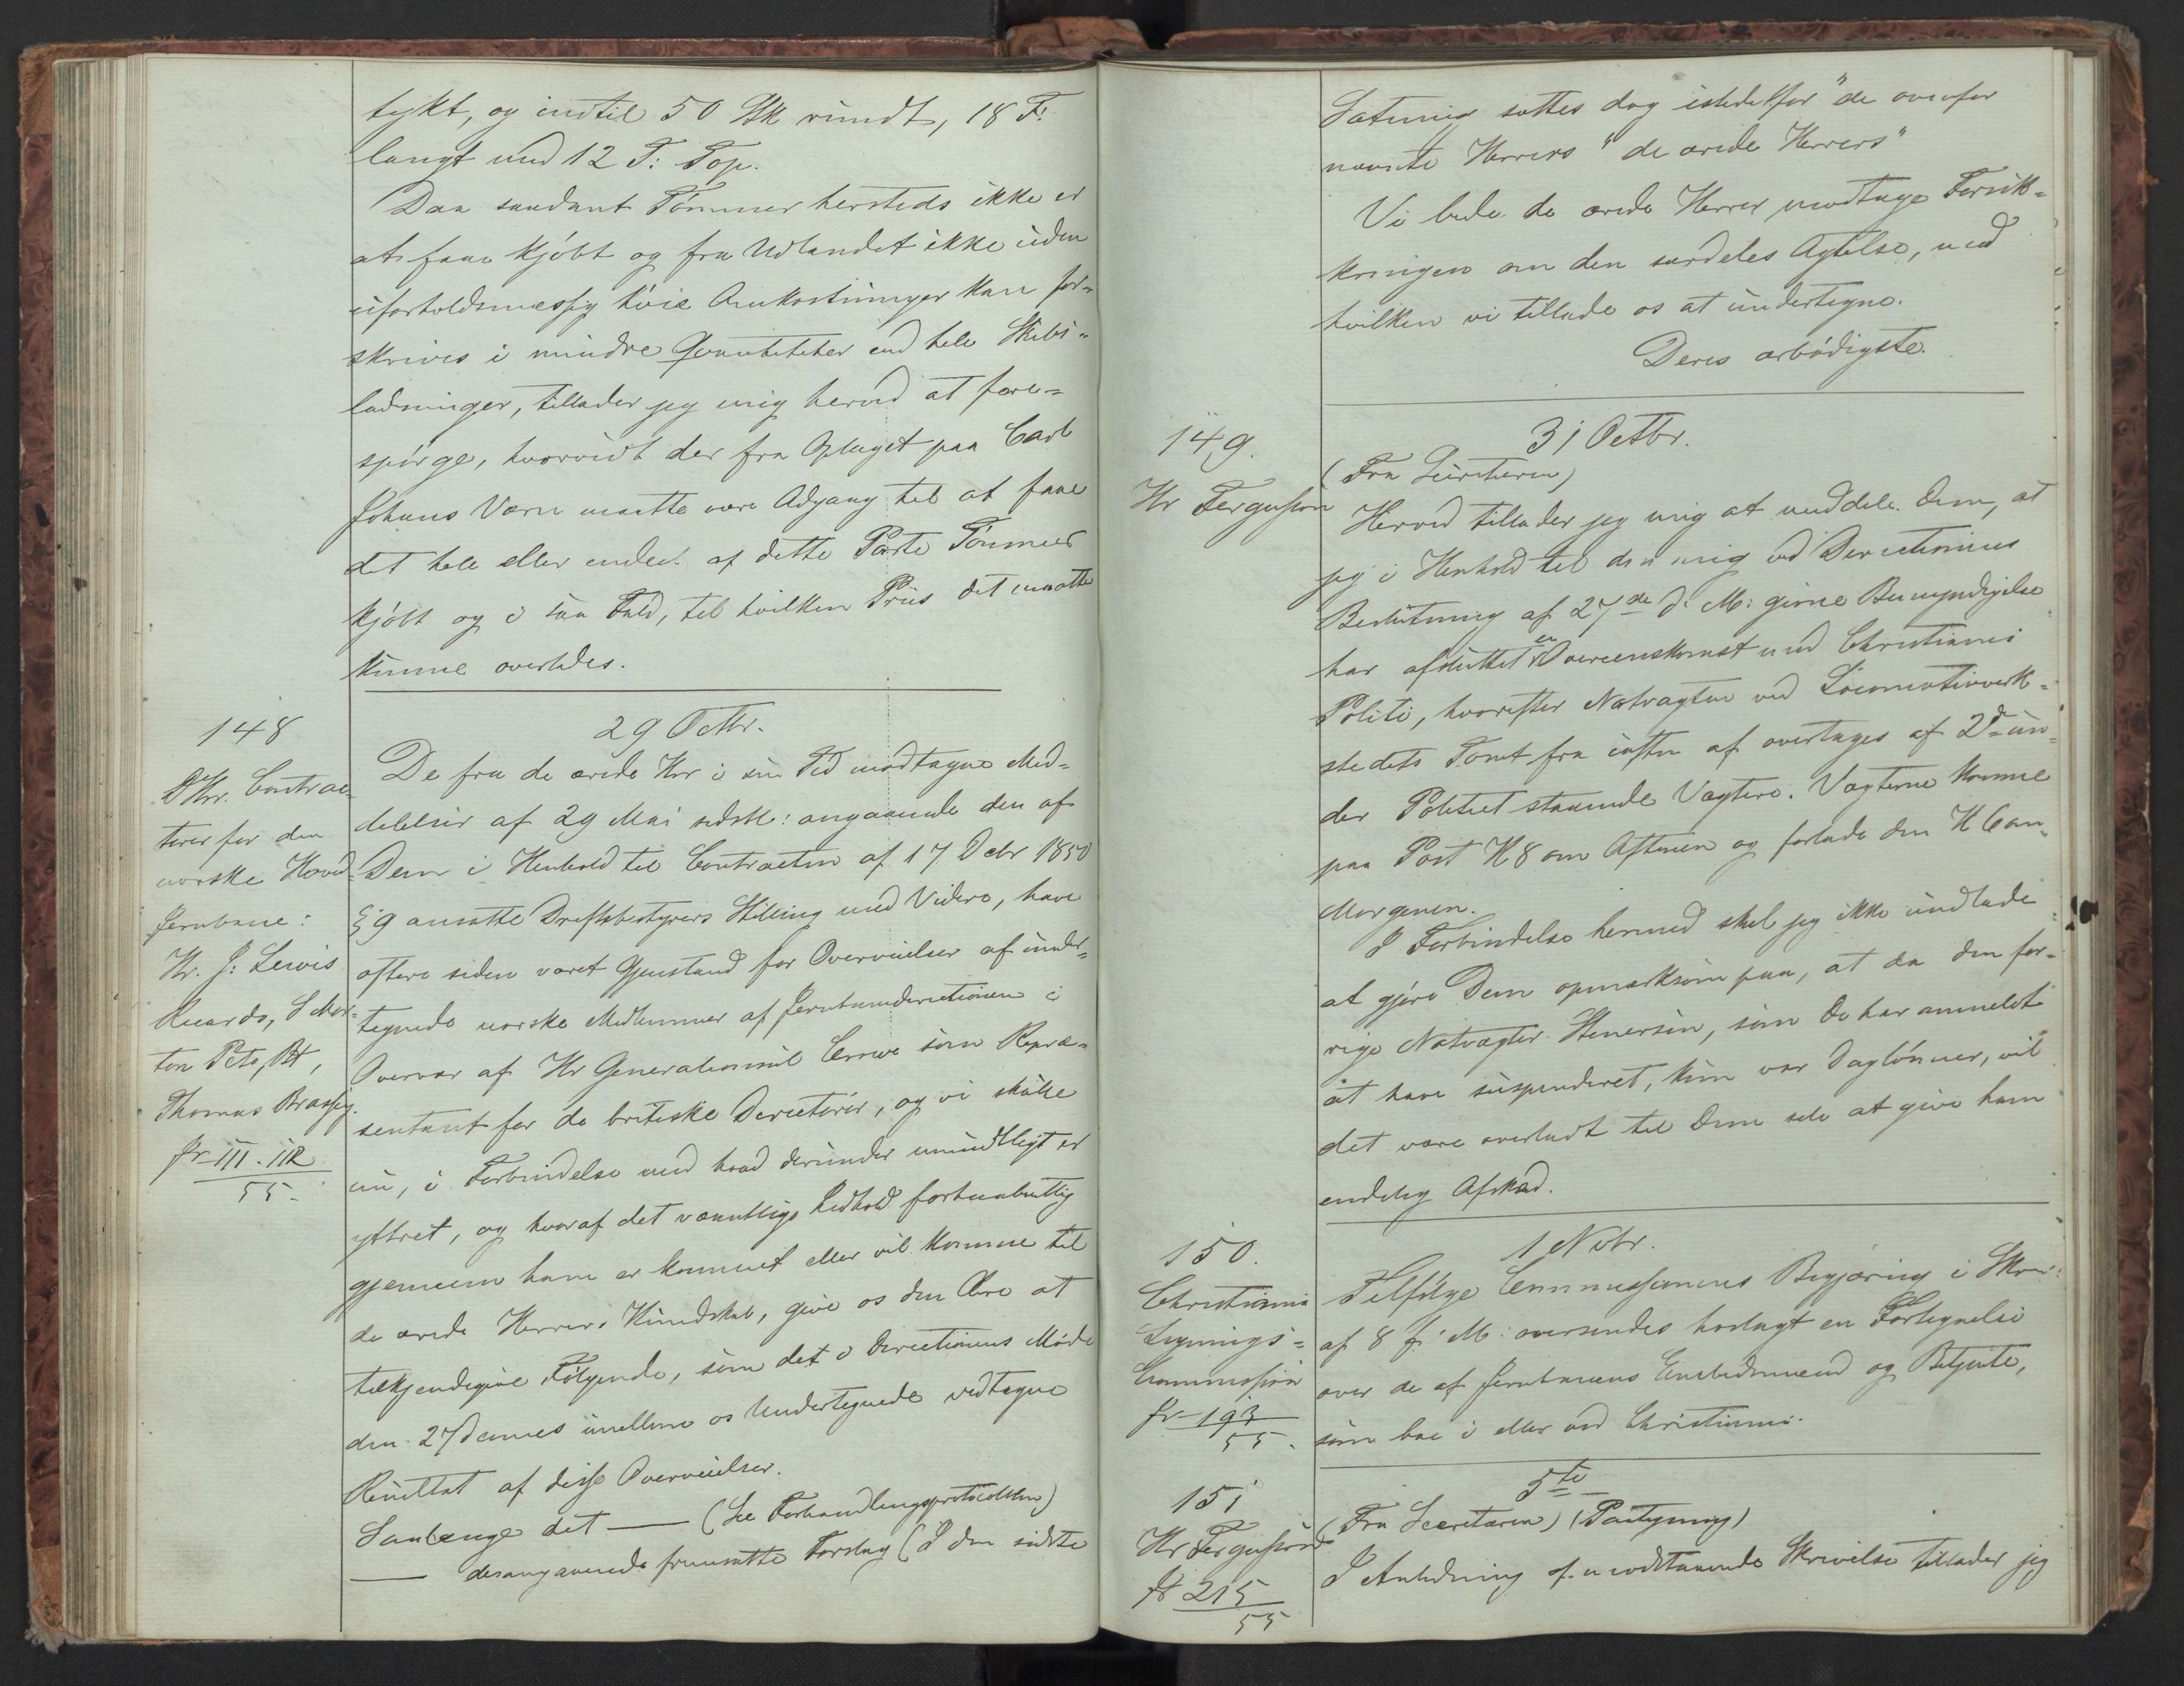 tykt, og indtil 50 Stk rundt, 18 F.
langt med 12 T: Top.
Daa saadant Tømmer hersteds ikke er
at faae kjøbt og fra Udlandet ikke uden
uforholdsmæssig høie Omkostninger kan for-
skrives i mindre Qvantiteter end hele Skibs-
ladninger, tillader jeg mig herved at fore-
spørge, hvorvidt der fra Oplaget paa Carl
Johans Værn maatte være Adgang til at faae
det hele eller endeel af dette Partie Tømmer
kjøbt og i saa Fald, til hvilken Priis det maatte
kunne overlades.
148
29 Octbr.
DHrr. Contrac-
torer for den
norske Hoved-
Jernbane:
Hr. J: Lewis
Ricardo, S Mor-
ton Peto, Bt,
Thomas Brassey.
Jr III. 112
55.
De fra de ærede Hrr i sin Tid modtagne Med-
delelser af 29 Mai sidstl: angaaende den af
Dem i Henhold til Contracten af 17 Decbr 1850
§ 9 ansatte Driftsbestyrers Stilling med Videre, have
oftere siden været Gjenstand for Overveielser af under-
tegnede norske Medlemmer af Jernbanedirectionen i
Overvær af Hr Generalconsul Crowe som Repræ-
sentant for de britiske Directører, og vi skulle
nu, i Forbindelse med hvad derunder mundtligt er
yttret, og hvoraf det væsentlige Indhold
gjennem ham er kommet eller vil komme til
de ærede Herrers Kundskab, give os den Ære at
tilkjendegive Følgende, som det i Directionens Møde
den 27 dennes imellem os Undertegnede vedtagne
Resultat af disse Overveielser.
Saalænge det — (See Forhandlingsprotocollen)
— desangaaende fremsatte Forslag (I den sidste
Sætning sættes dog istedetfor "de ovenfor
nævnte Herrers" "de ærede Herrers"
Vi bede de ærede Herrer modtage Forsik-
kringen om den særdeles Agtelse, med
hvilken vi tillade os at undertegne.
Deres ærbødigste.
149.
31 Octbr.
Hr Fergusson
(Fra Secretæren)
Herved tillader jeg mig at meddele Dem, at
jeg i Henhold til den mig ved Directionens
Beslutning af 27de d: M: givne Bemyndigelse
har afsluttet en Overeenskomst med Christiania
Politi, hvorefter Natvagten ved Locomotivværk-
stedets Tomt fra iaften af overtages af 2de un-
der Politiet staaende Vægtere. Vægterne komme
paa Post Kl 8 om Aftenen og forlade den Kl 6 om
Morgenen.
I Forbindelse hermed skal jeg ikke undlade
at gjøre Dem opmærksom paa, at da den for-
rige Natvægter Stenersen, som De har anmeldt
at have suspenderet, kun var Daglønner, vil
det være overladt til Dem selv at give ham
endelig Afsked.
150.
1 Novbr.
Christiania
Lignings-
Commission
Jr 193
55.
Tilfølge Commissionens Begjæring i Skr:
af 8 f: M: oversendes hoslagt en Fortegnelse
over de af Jernbanens Embedsmænd og Betjente,
som boe i eller ved Christiania.
151
5te
Hr Fergusson
Jr 215
55
(Fra Secretæren) (Paategning)
I Anledning af modstaaende Skrivelse tillader jeg